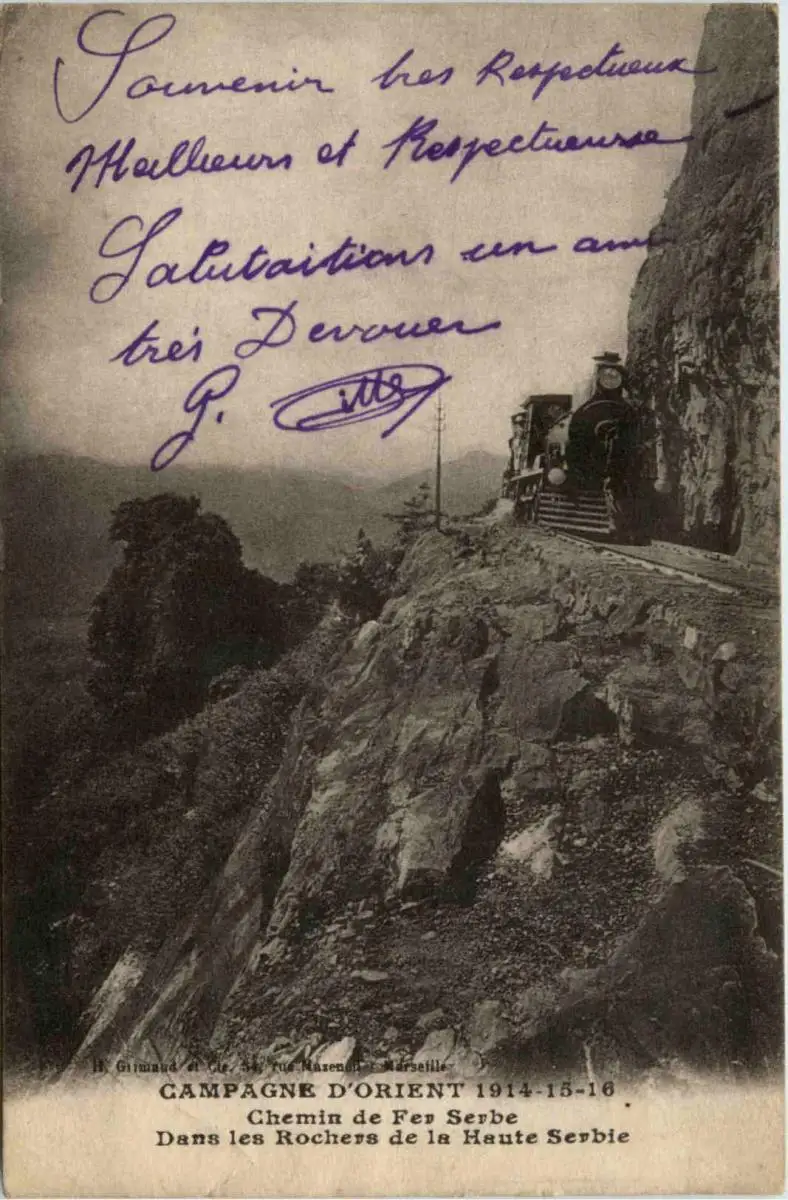 Souvenir tres Respectueux
Meilleurs et Respectueuse
Salutaitions un ami
très Devouer
G.
H. Grimaud et Cie, 54, rue Marseille
CAMPAGNE D'ORIENT 1914-15-16
Chemin de Fer Serbe
Dans les Rochers de la Haute Serbie